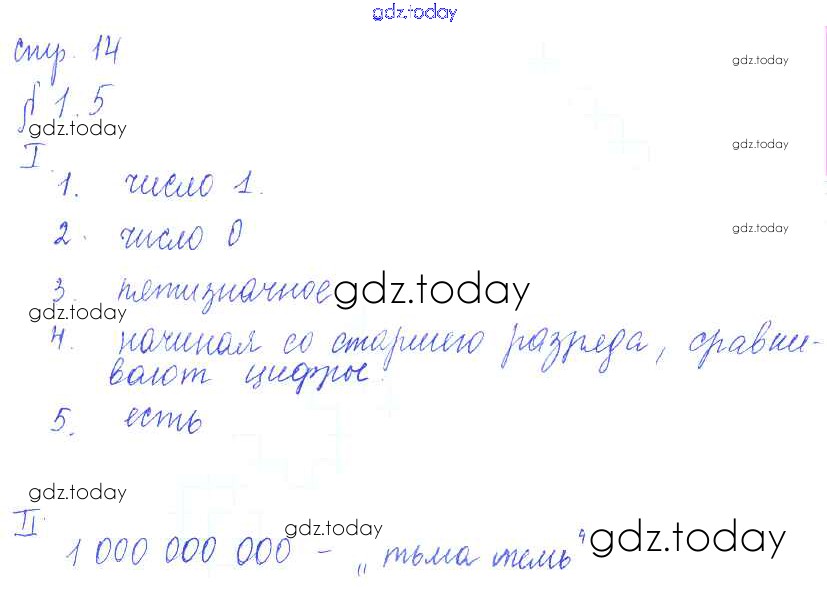 gdz.today
стр. 14
gdz.today
§ 1.5
gdz.today
gdz.today
I.
1. число 1.
2. число 0
gdz.today
3. пятизначное gdz.today
gdz.today
4. начиная со старшего разряда, сравни-
вают цифры.
5. есть
gdz.today
II
gdz.today
1 000 000 000 - „тьма тем“
gdz.today